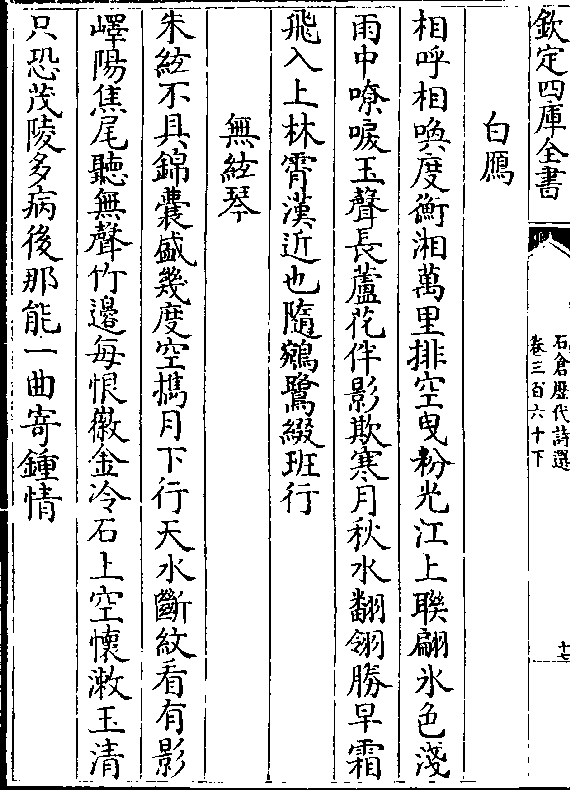 欽定四庫全書
石倉歷代詩選
卷三百六十下
十七
白鴈
相呼相喚度衡湘萬里排空曳粉光江上聯翩氷色淺
雨中嘹唳玉聲長蘆花伴影欺寒月秋水翻翎勝早霜
飛入上林霄漢近也隨鵷鷺綴班行
無絃琴
朱絃不具錦囊盛幾度空攜月下行天水斷紋看有影
嶧陽焦尾聽無聲竹邊每恨徽金冷石上空懷漱玉清
只恐茂陵多病後那能一曲寄鍾情